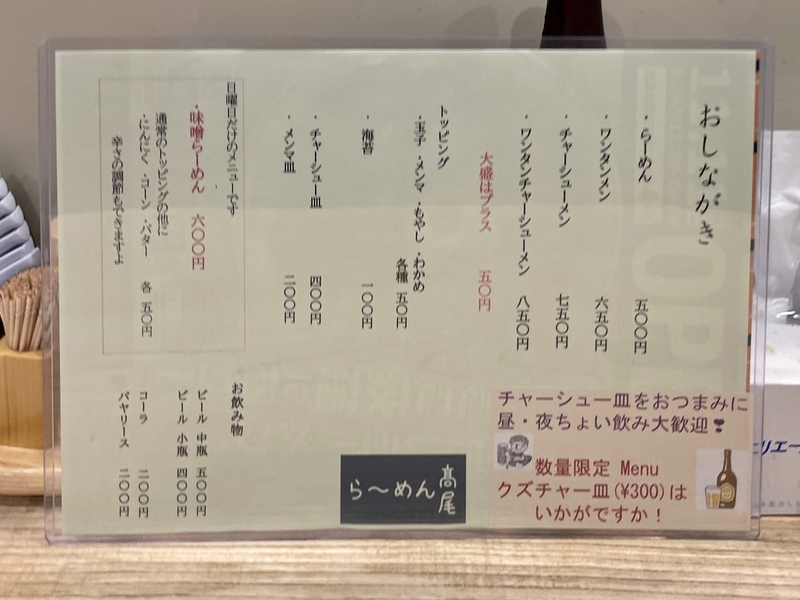 おしながき
・らーめん 五〇〇円
・ワンタンメン 六五〇円
・チャーシューメン 七五〇円
・ワンタンチャーシューメン 八五〇円
大盛はプラス 五〇円
トッピング
・玉子・メンマ・もやし・わかめ
各種 五〇円
・海苔 一〇〇円
・チャーシュー皿 四〇〇円
・メンマ皿 二〇〇円
日曜日だけのメニューです
・味噌らーめん 六〇〇円
通常のトッピングの他に
・にんにく・コーン・バター 各 五〇円
辛さの調節もできますよ
お飲み物
ビール 中瓶 五〇〇円
ビール 小瓶 四〇〇円
コーラ 二〇〇円
バヤリース 二〇〇円
らーめん 高尾
チャーシュー皿をおつまみに
昼・夜ちょい飲み大歓迎❣
数量限定 Menu
クズチャー皿(¥300)は
いかがですか！